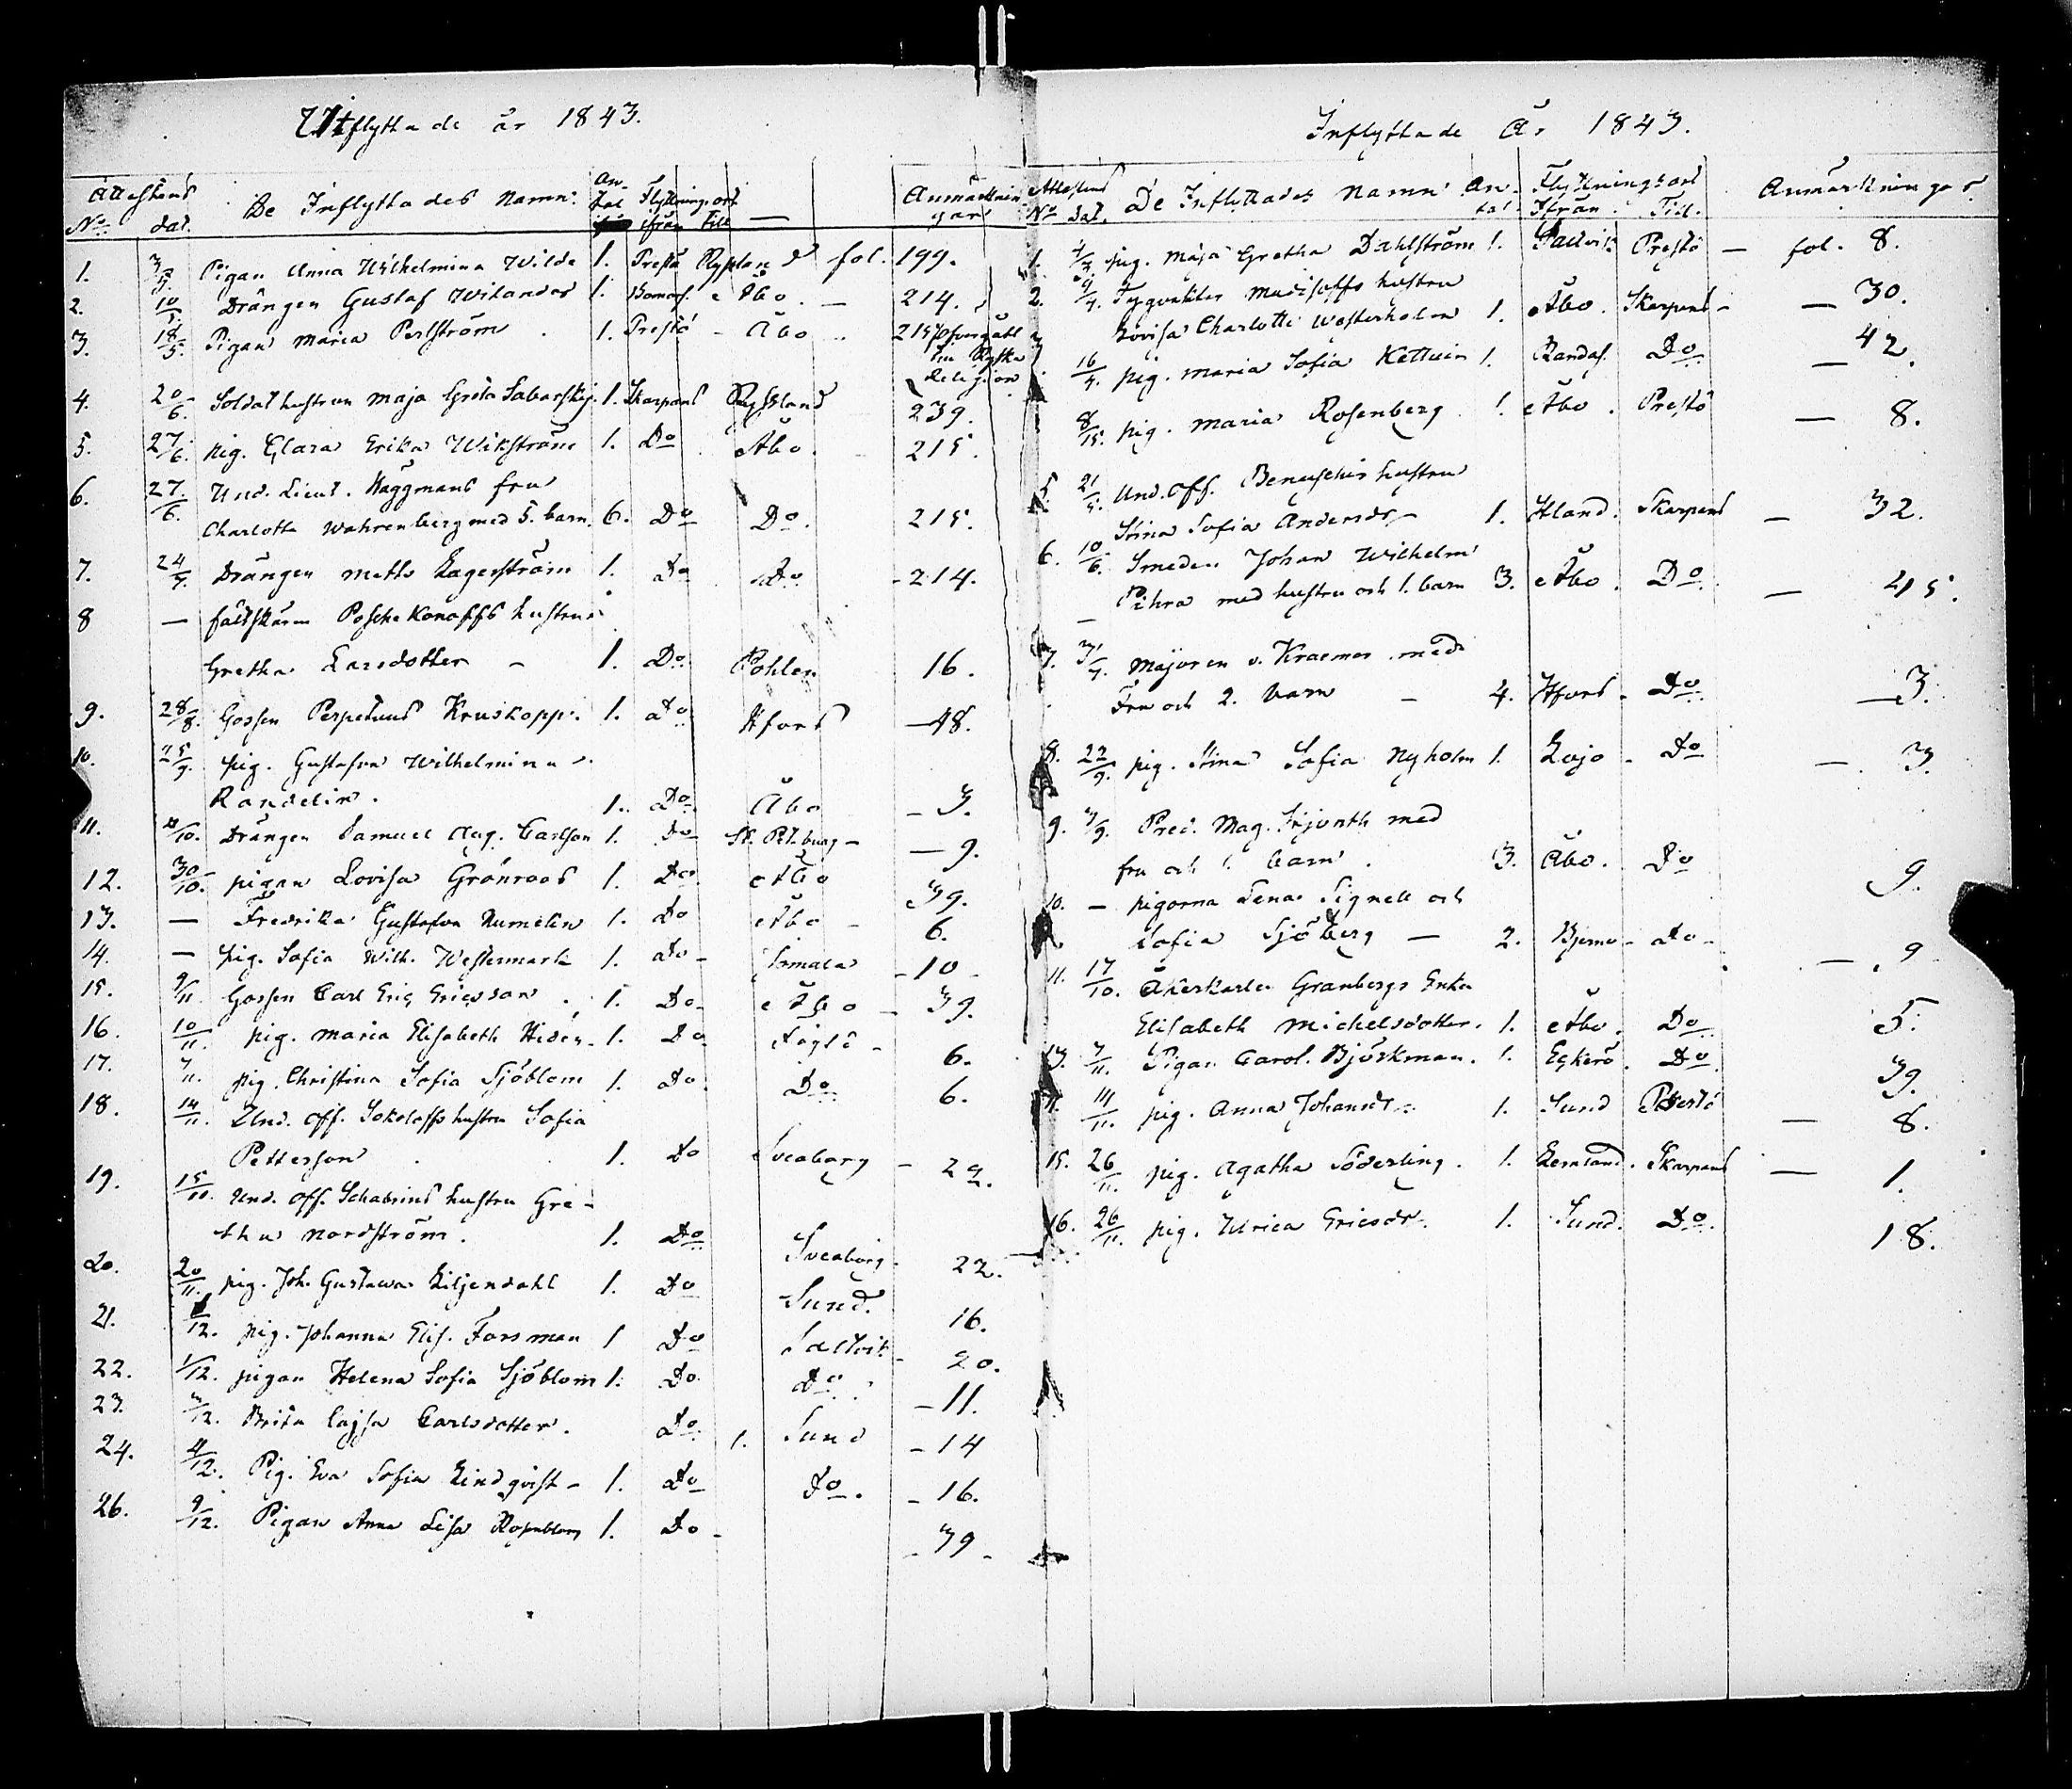 Utflyttade år 1843.
Attestens De Inflyttades Namn. An- Flyttningsort Anmärknin-
No dat. tal ifrån till gar
1. 3/5. Pigan Anna Wilhelmina Wilde 1. Prestö Ryssland fol. 199.
2. 10/5. Drängen Gustaf Wilander 1. Bomars. Åbo. — 214.
3. 18/5. Pigan Maria Perlström 1. Prestö - Åbo 215
Ryska
Religion
4. 20/6. Soldat hustrun Maja Greta Sabarskij. 1. Skarpans Ryssland 239.
5. 27/6. pig. Clara Erika Wikström 1. Do Åbo. 215.
6. 27/6. Und. Lieut. Häggmans fru
Charlotta Wahrenberg med 5. barn. 6. Do Do. 215.
7. 24/7. Drängen Matts Lagerström 1. Do Do. - 214.
8 — fältskärn Poschekonoffs hustru
Gretha Larsdotter - 1. Do Pohlen 16.
9. 28/8. Gossen Perpetuus Kruskopp. 1. Do Hfors — 48.
10. 25/9. pig. Gustafva Wilhelmina
Randelin. 1. Do Åbo - 3.
11. /10. Drängen Samuel Aug. Carlson 1. Do St. Ptburg - — 9.
12. 30/10. pigan Lovisa Grönroos 1. Do Åbo 39.
13. — Fredrika Gustafva Rumelin 1. Do Åbo - 6.
14. — pig. Sofia Wilh. Westermark 1. Do - Somala - 10 -
15. 9/11. Gossen Carl Eric Ericsson. 1. Do - Åbo - 39.
16. 10/11. pig. Maria Elisabeth Hiden. 1. Do Föglö - 6.
17. 7/11. pig. Christina Sofia Sjöblom 1. Do. Do. 6.
18. 14/11. Und. off. Sokoloffs hustru Sofia
Petterson 1. Do Sveaborg - 29.
19. 15/11. Und. off. Schabrins hustru Gre-
tha Nordström. 1. Do Sveaborg. 22.
20. 20/11. pig. Joh. Gustava Liljendahl 1. Do Sund. 16.
21. /12. pig. Johanna Elis. Forsman 1 Do Saltvik - 20.
22. 1/12. pigan Helena Sofia Sjöblom 1. Do Do. - 11.
23. 3/12. Brita Cajsa Carlsdotter. Do 1. Sund - 14
24. 4/12. Pig. Eva Sofia Lindqvist - 1. Do Do. - 16.
26. 9/12. Pigan Anna Lisa Rosenblom 1. Do - - 39 -
Inflyttade År 1843.
Attestens De Inflyttades Namn An- Flyttningsort Anmärkningar
No dat. tal. Ifrån. Till.
1. pig. Maja Gretha Dahlström 1. Saltvik Prestö — fol. 8.
2. 9/4. Tygvaktar Madisoffs hustru
Lovisa Charlotte Westerholm 1. Åbo. Skarpans - — 30.
16/4. pig. Maria Sofia Kettuin 1. Randas. Do — 42.
8/15. pig. Maria Rosenberg. 1. Åbo. Prestö — 8.
5. 21/5. Und. off. Benuschis hustru
Stina Sofia Andersdr - 1. Hland. Skarpans — 32.
6. 10/6. Smeden Johan Wilhelm
Pihra med hustru och 1. barn 3. Åbo. Do. — 215.
7. 31/7. Majoren v. Kraemer med
Fru och 2. barn - 4. Hfors. Do — 3.
8. 22/9. pig. Stina Sofia Nyholm 1. Lojo - Do — 3.
9. /9. Pred. Mag. Hjorth med
fru och 1. barn. 3. Åbo. Do 9.
10. - pigorna Lena Signell och
Sofia Sjöberg — 2. Bjerno - Do - — 9
11. 17/10. Åkerkarlen Granbergs Enka
Elisabeth Michelsdotter. 1. Åbo. Do 5.
13. 7/11. Pigan Carol. Björkman. 1. Eckerö. Do. 39.
11/11. pig. Anna Johansdr. 1. Sund Prestö — 8.
15. 26/11. pig. Agatha Söderling. 1. Lemland. Skarpans — 1.
16. 26/11. pig. Ulrica Ericsdr. 1. Sund. Do. 18.